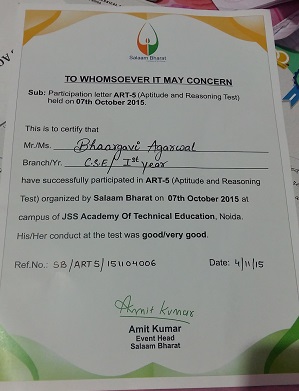 Salaam Bharat
TO WHOMSOEVER IT MAY CONCERN
Sub: Participation letter ART-5 (Aptitude and Reasoning Test)
held on 07th October 2015.
This is to certify that
Mr./Ms. Bhaargavi Agarwal
Branch/Yr. C.S.E/ Ist year
have successfully participated in ART-5 (Aptitude and Reasoning
Test) organized by Salaam Bharat on 07th October 2015 at
campus of JSS Academy Of Technical Education, Noida.
His/Her conduct at the test was good/very good.
Ref.No.: SB/ART5/151104006 Date: 4/11/15
Amit Kumar
Amit Kumar
Event Head
Salaam Bharat